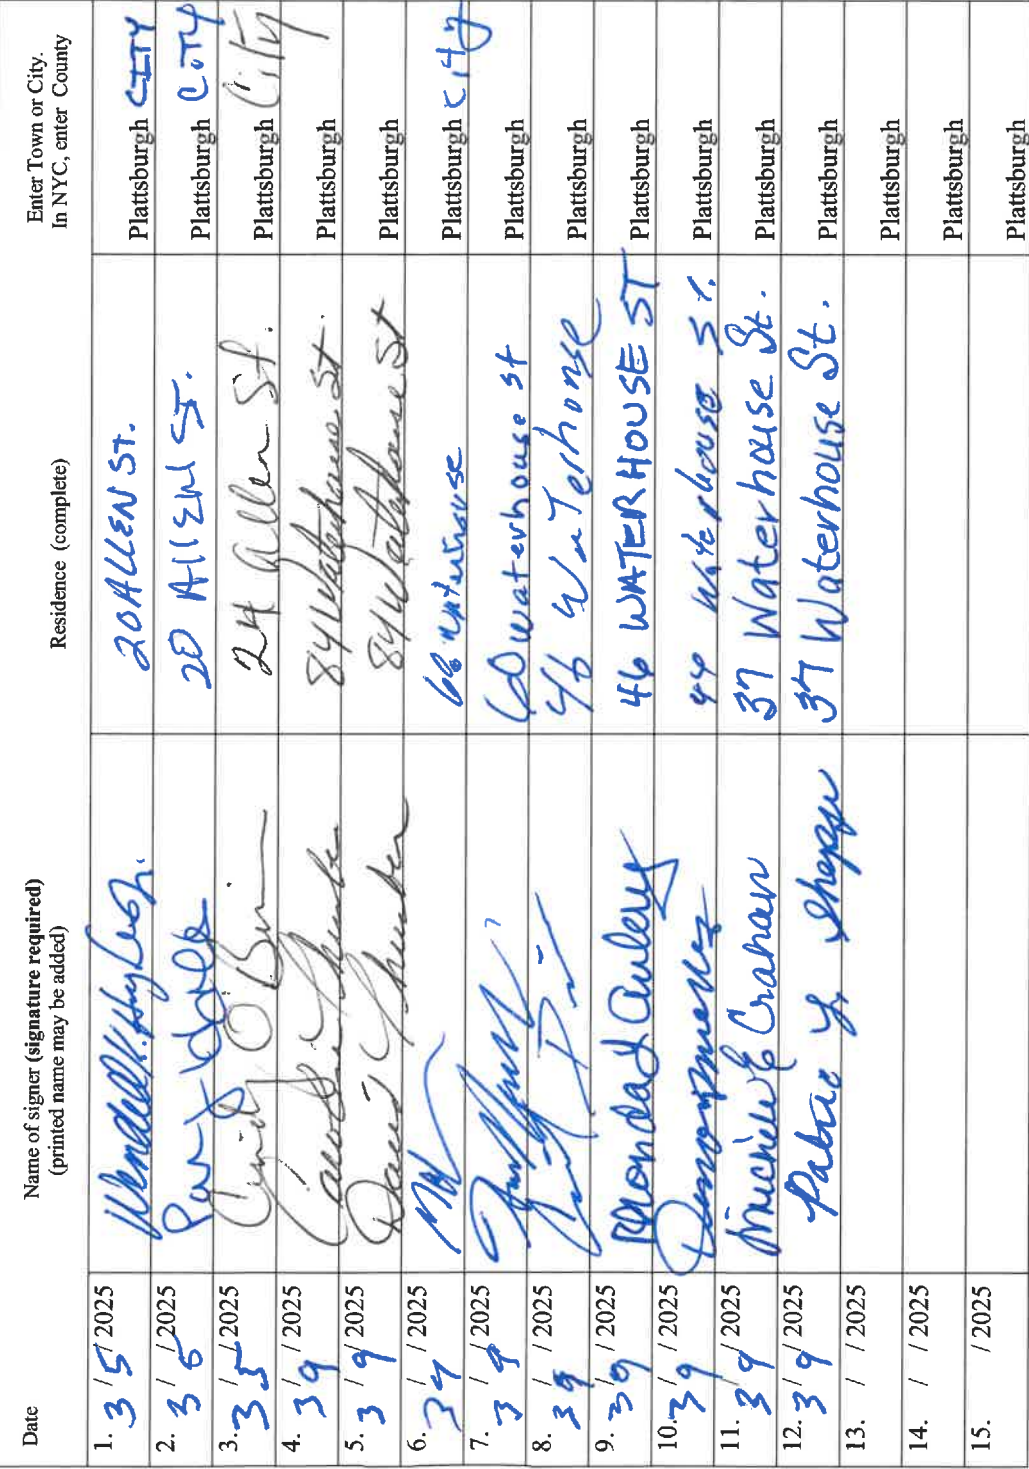 Date
Name of signer (signature required)
(printed name may be added)
Residence (complete)
Enter Town or City.
In NYC, enter County
1. 3/5/2025 Wendell K. Hughes Jr. 20 ALLEN ST. Plattsburgh CITY
2. 3/5/2025 20 AllEN ST. Plattsburgh CITY
3. 3/5/2025 Cindy O'B 24 Allen St. Plattsburgh City
4. 3/9/2025 84 Waterhouse St. Plattsburgh
5. 3/9/2025 David 84 Waterhouse St Plattsburgh
6. 3/9/2025 Waterhouse Plattsburgh City
7. 3/9/2025 60 waterhouse st Plattsburgh
8. 3/9/2025 46 WaTerhouse Plattsburgh
9. 3/9/2025 Rhonda 46 WATERHOUSE ST Plattsburgh
10. 3/9/2025 44 Waterhouse St. Plattsburgh
11. 3/9/2025 Michele E Crahan 37 Waterhouse St. Plattsburgh
12. 3/9/2025 37 Waterhouse St. Plattsburgh
13. / /2025 Plattsburgh
14. / /2025 Plattsburgh
15. / /2025 Plattsburgh